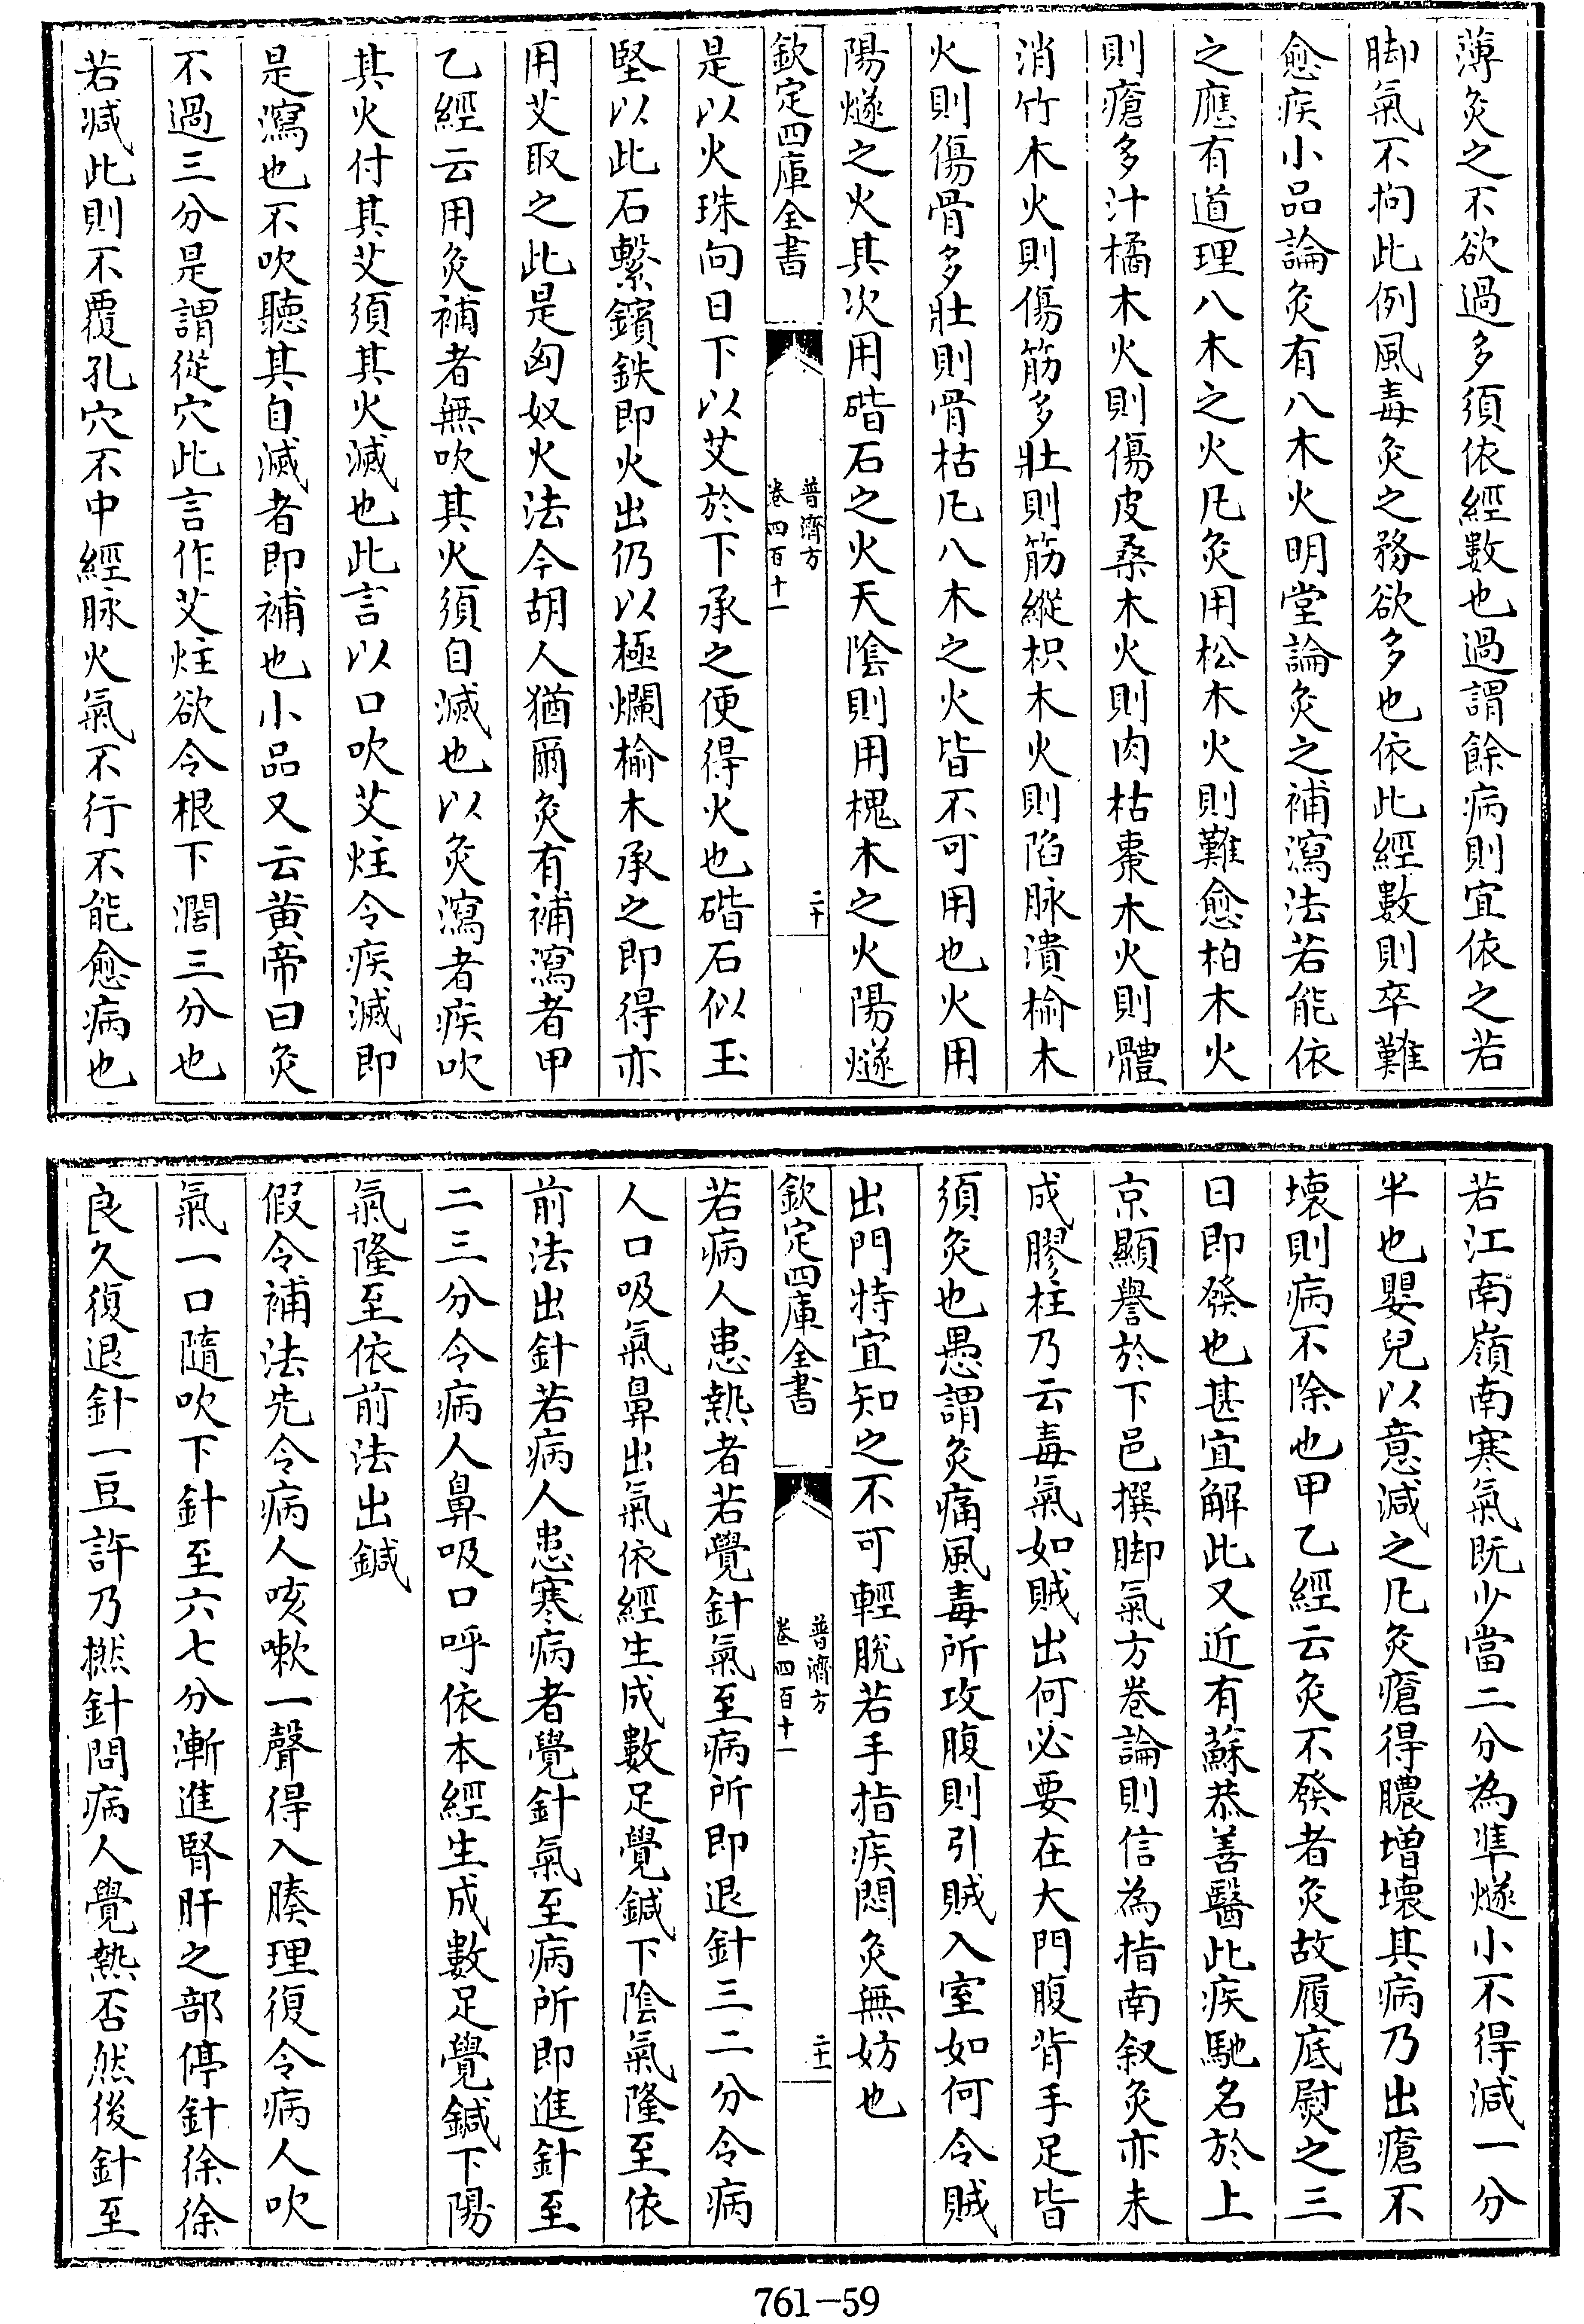 薄灸之不欲過多須依經數也過謂餘病則宜依之若
脚氣不拘此例風毒灸之務欲多也依此經數則卒難
愈疾小品論灸有八木火明堂論灸之補瀉法若能依
之應有道理八木之火凡灸用松木火則難愈柏木火
則瘡多汁橘木火則傷皮桑木火則肉枯棗木火則體
消竹木火則傷筋多壯則筋縱枳木火則陷脉潰榆木
火則傷骨多壯則骨枯凡八木之火皆不可用也火用
陽燧之火其次用䃈石之火天陰則用槐木之火陽燧
欽定四庫全書
普濟方
卷四百十一
二十
是以火珠向日下以艾於下承之便得火也䃈石似玉
堅以此石繫鑌鉄即火出仍以極爛榆木承之即得亦
用艾取之此是匈奴火法今胡人猶爾灸有補瀉者甲
乙經云用灸補者無吹其火須自滅也以灸瀉者疾吹
其火付其艾須其火滅也此言以口吹艾炷令疾滅即
是瀉也不吹聽其自滅者即補也小品又云黃帝曰灸
不過三分是謂從穴此言作艾炷欲令根下濶三分也
若減此則不覆孔穴不中經脉火氣不行不能愈病也
若江南嶺南寒氣既少當二分為準燧小不得減一分
半也嬰兒以意減之凡灸瘡得膿增壞其病乃出瘡不
壞則病不除也甲乙經云灸不發者灸故履底熨之三
日即發也甚宜解此又近有蘇恭善醫此疾馳名於上
京顯譽於下邑撰脚氣方卷論則信為指南叙灸亦未
成膠柱乃云毒氣如賊出何必要在大門腹背手足皆
須灸也愚謂灸痛風毒所攻腹則引賊入室如何令賊
出門特宜知之不可輕脫若手指疾悶灸無妨也
欽定四庫全書
普濟方
卷四百十一
二十一
若病人患熱者若覺針氣至病所即退針三二分令病
人口吸氣鼻出氣依經生成數足覺鍼下陰氣隆至依
前法出針若病人患寒病者覺針氣至病所即進針至
二三分令病人鼻吸口呼依本經生成數足覺鍼下陽
氣隆至依前法出鍼
假令補法先令病人咳嗽一聲得入腠理復令病人吹
氣一口隨吹下針至六七分漸進腎肝之部停針徐徐
良久復退針一豆許乃撚針問病人覺熱否然後針至
761-59